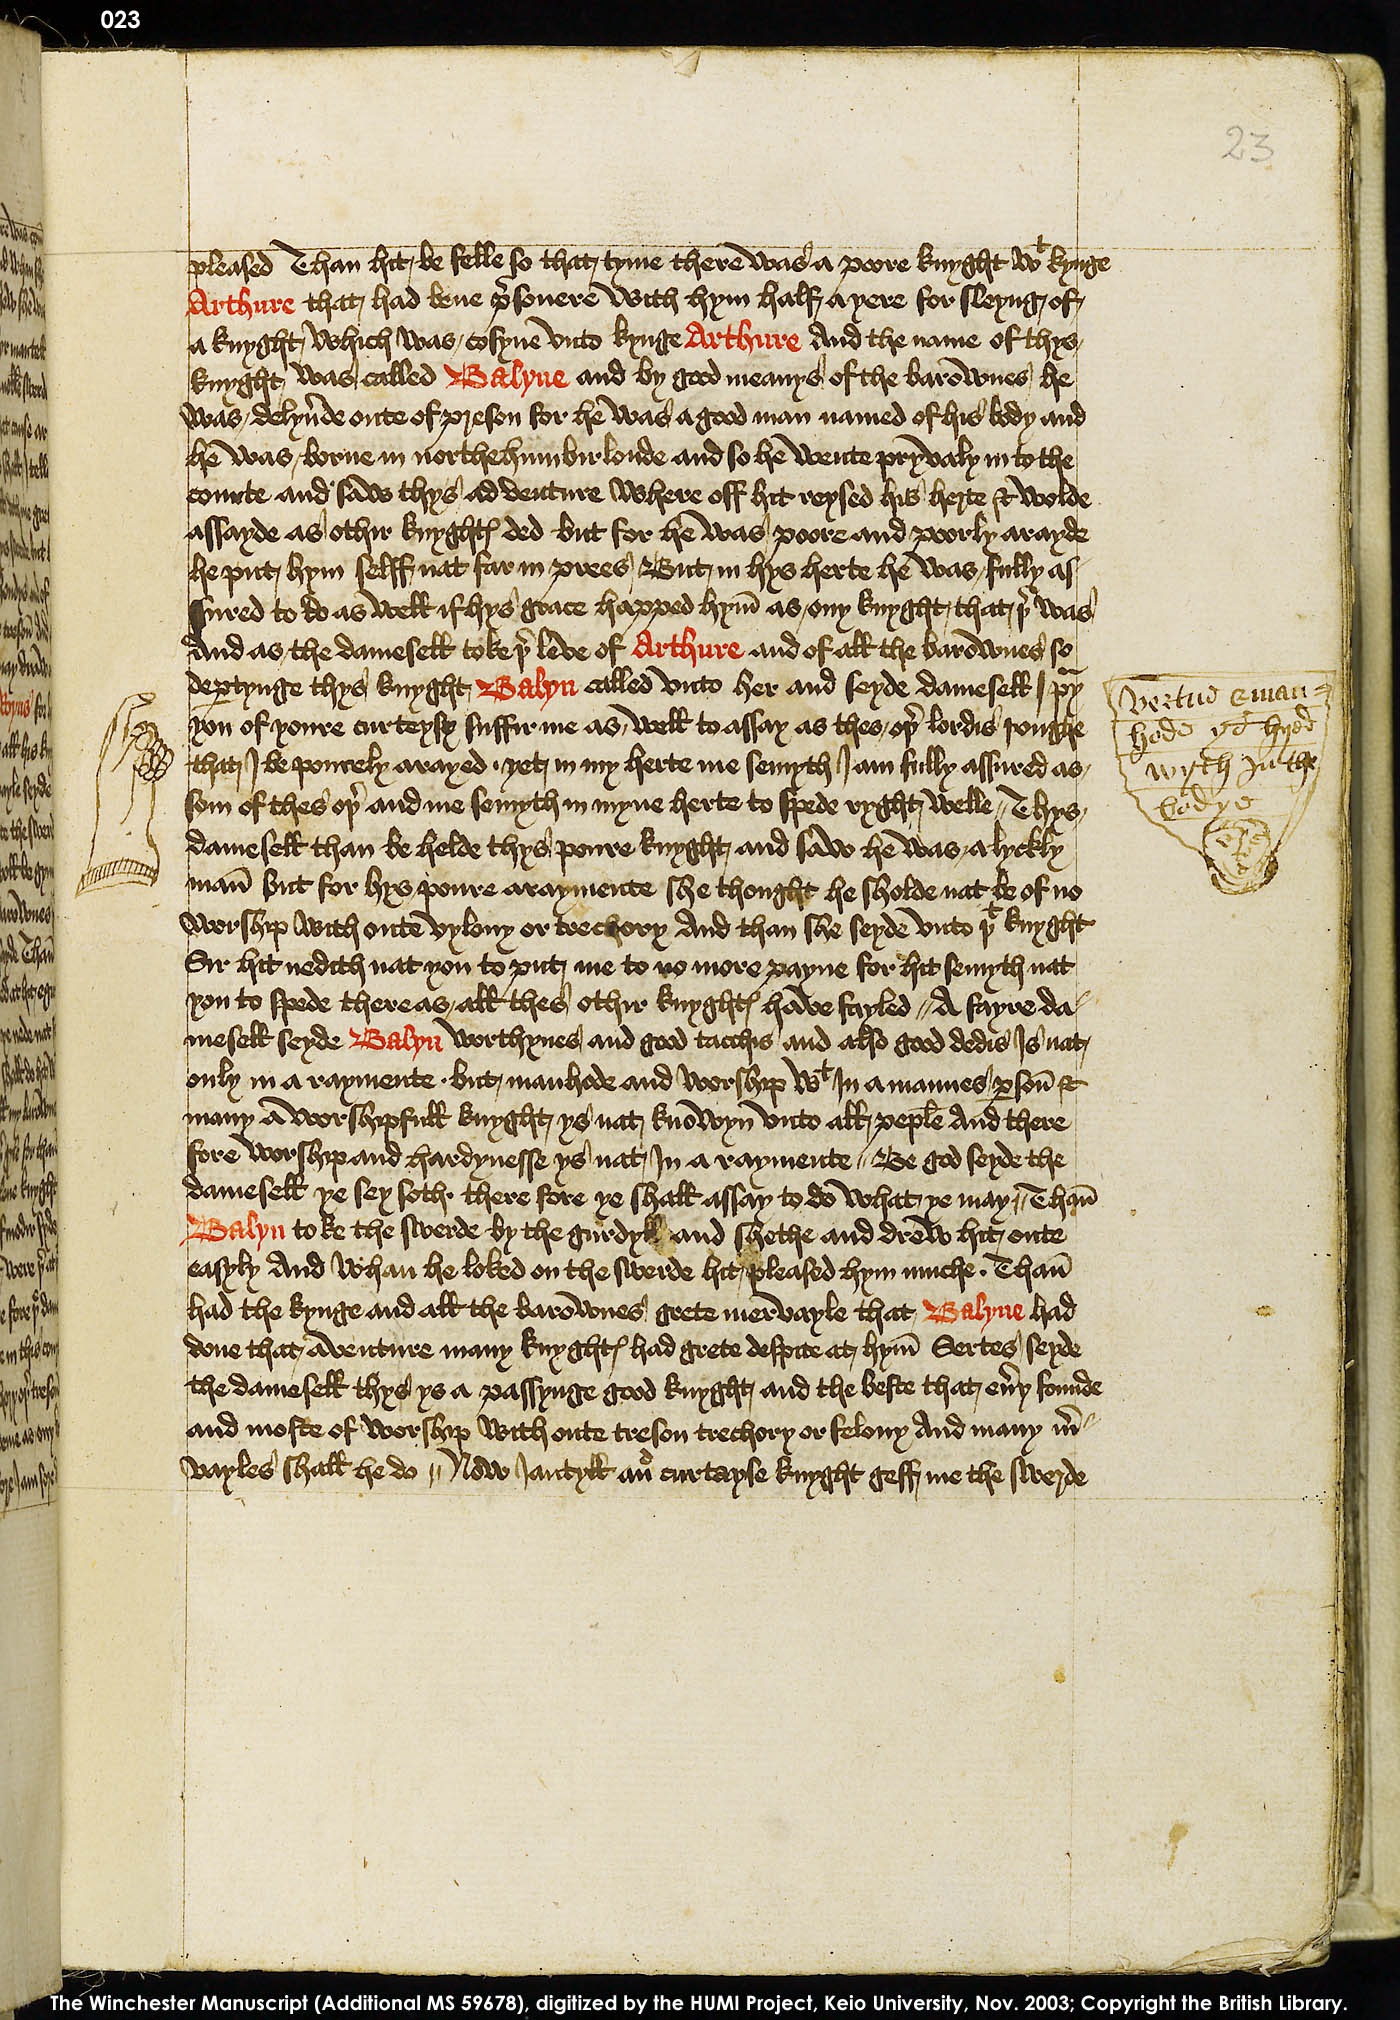 023
23
pleased Than hit be felle so that tyme there was a poore knyght wt kynge
Arthure that had bene p̾sonere with hym half a yere for sleyng of
a knyght which was cosyne vnto kynge Arthure And the name of thys
knyght was called Balyne and by good meanys of the barownes he
was delyu̾de oute of preson for he was a good man named of his body and
he was borne in northehumbirlonde and so he wente pryvaly in to the
courte and saw thys adventure where off hit reysed his herte & wolde
assayde as othir knyghtꝭ ded but for he was poore and poorly arayde
he put hym selff nat far in prees But in hys herte he was fully as
sured to do as well if hys grace happed hym̄ as ony knyght that þ̾ was
And as the damesell toke þ̾ leve of Arthure and of all the barownes so
dep̱tynge thys knyght Balyn called vnto her and seyde damesell I p̾y
you of youre curteysy suffir me as well to assay as thes oþ̾ lordis Þoughe
that I be pourely arayed · yet in my herte me semyth I am fully assured as
som of thes oþ̾ and me semyth in myne herte to spede ryght welle // Thys
damesell than be helde thys poure knyght and saw he was a lyckly
man̄ but for hys poure araymente she thought he sholde nat be of no
worship with oute vylony or trechory And than she seyde vnto þt knyght
Sir hit nedith nat you to put me to no more payne for hit semyth nat
you to spede there as all thes othir knyghtꝭ have fayled // A fayre da
mesell seyde Balyn worthynes and good tacchis and also good dedis Is nat
only in a raymente · but manhode and worship wt In a mannes p̱son̄ &
many a worshipfull knyght ys nat knowyn vnto all peple And there
fore worship and hardynesse ys nat In a raymente // Be god seyde the
damesell ye sey soth · there fore ye shall assay to do what ye may // Than̄
Balyn to ke the swerde by the gurdyll and shethe and drew hit oute
easyly And whan he loked on the swerde hit pleased hym muche · Than̄
had the kynge and all the barownes grete mervayle that Balyne had
done that aventure many knyghtꝭ had grete despite at hym̄ Sertes seyde
the damesell thys ys a passynge good knyght and the beste that eu̾ y founde
and moste of worship with oute treson trechory or felony And many m̾
vayles shall he do // Now Jantyll an̾ curtayse knyght geff me the swerde
Vertue & man=
hode ys hyed
wyth In the
bodye
The Winchester Manuscript (Additional MS 59678), digitized by the HUMI Project, Keio University, Nov. 2003; Copyright the British Library.